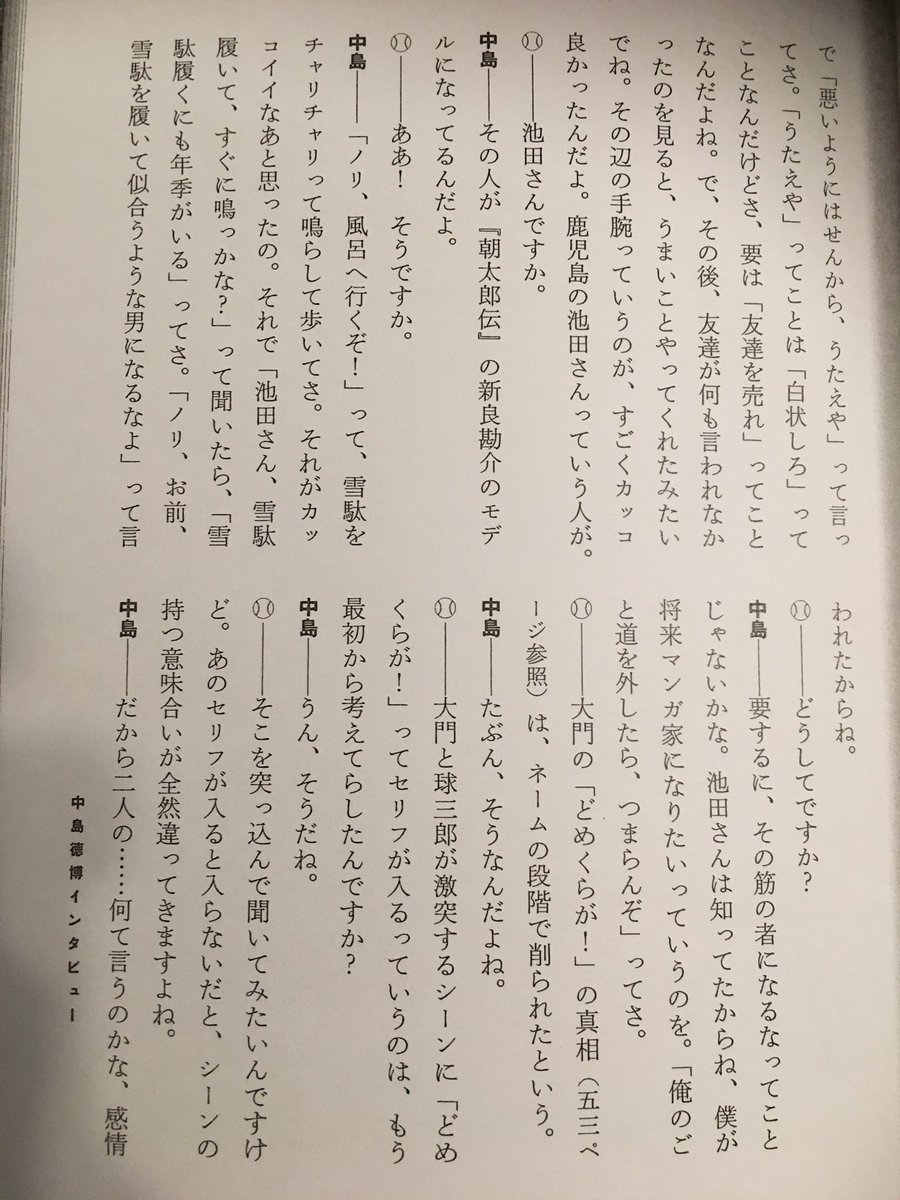 で「悪いようにはせんから、うたえや」って言っ
てさ。「うたえや」ってことは「白状しろ」って
ことなんだけどさ、要は「友達を売れ」ってこと
なんだよね。で、その後、友達が何も言われなか
ったのを見ると、うまいことやってくれたみたい
でね。その辺の手腕っていうのが、すごくカッコ
良かったんだよ。鹿児島の池田さんっていう人が。
――池田さんですか。
中島――その人が『朝太郎伝』の新良勘介のモデ
ルになってるんだよ。
――ああ!　そうですか。
中島――「ノリ、風呂へ行くぞ!」って、雪駄を
チャリチャリって鳴らして歩いてさ。それがカッ
コイイなあと思ったの。それで「池田さん、雪駄
履いて、すぐに鳴っかな?」って聞いたら、「雪
駄履くにも年季がいる」ってさ。「ノリ、お前、
雪駄を履いて似合うような男になるなよ」って言
われたからね。
――どうしてですか?
中島――要するに、その筋の者になるなってこと
じゃないかな。池田さんは知ってたからね、僕が
将来マンガ家になりたいっていうのを。「俺のご
と道を外したら、つまらんぞ」ってさ。
――大門の「どめくらが!」の真相（五三ペ
ージ参照）は、ネームの段階で削られたという。
中島――たぶん、そうなんだよね。
――大門と球三郎が激突するシーンに「どめ
くらが!」ってセリフが入るっていうのは、もう
最初から考えてらしたんですか?
中島――うん、そうだね。
――そこを突っ込んで聞いてみたいんですけ
ど。あのセリフが入ると入らないだと、シーンの
持つ意味合いが全然違ってきますよね。
中島――だから二人の……何て言うのかな、感情
中島徳博インタビュー